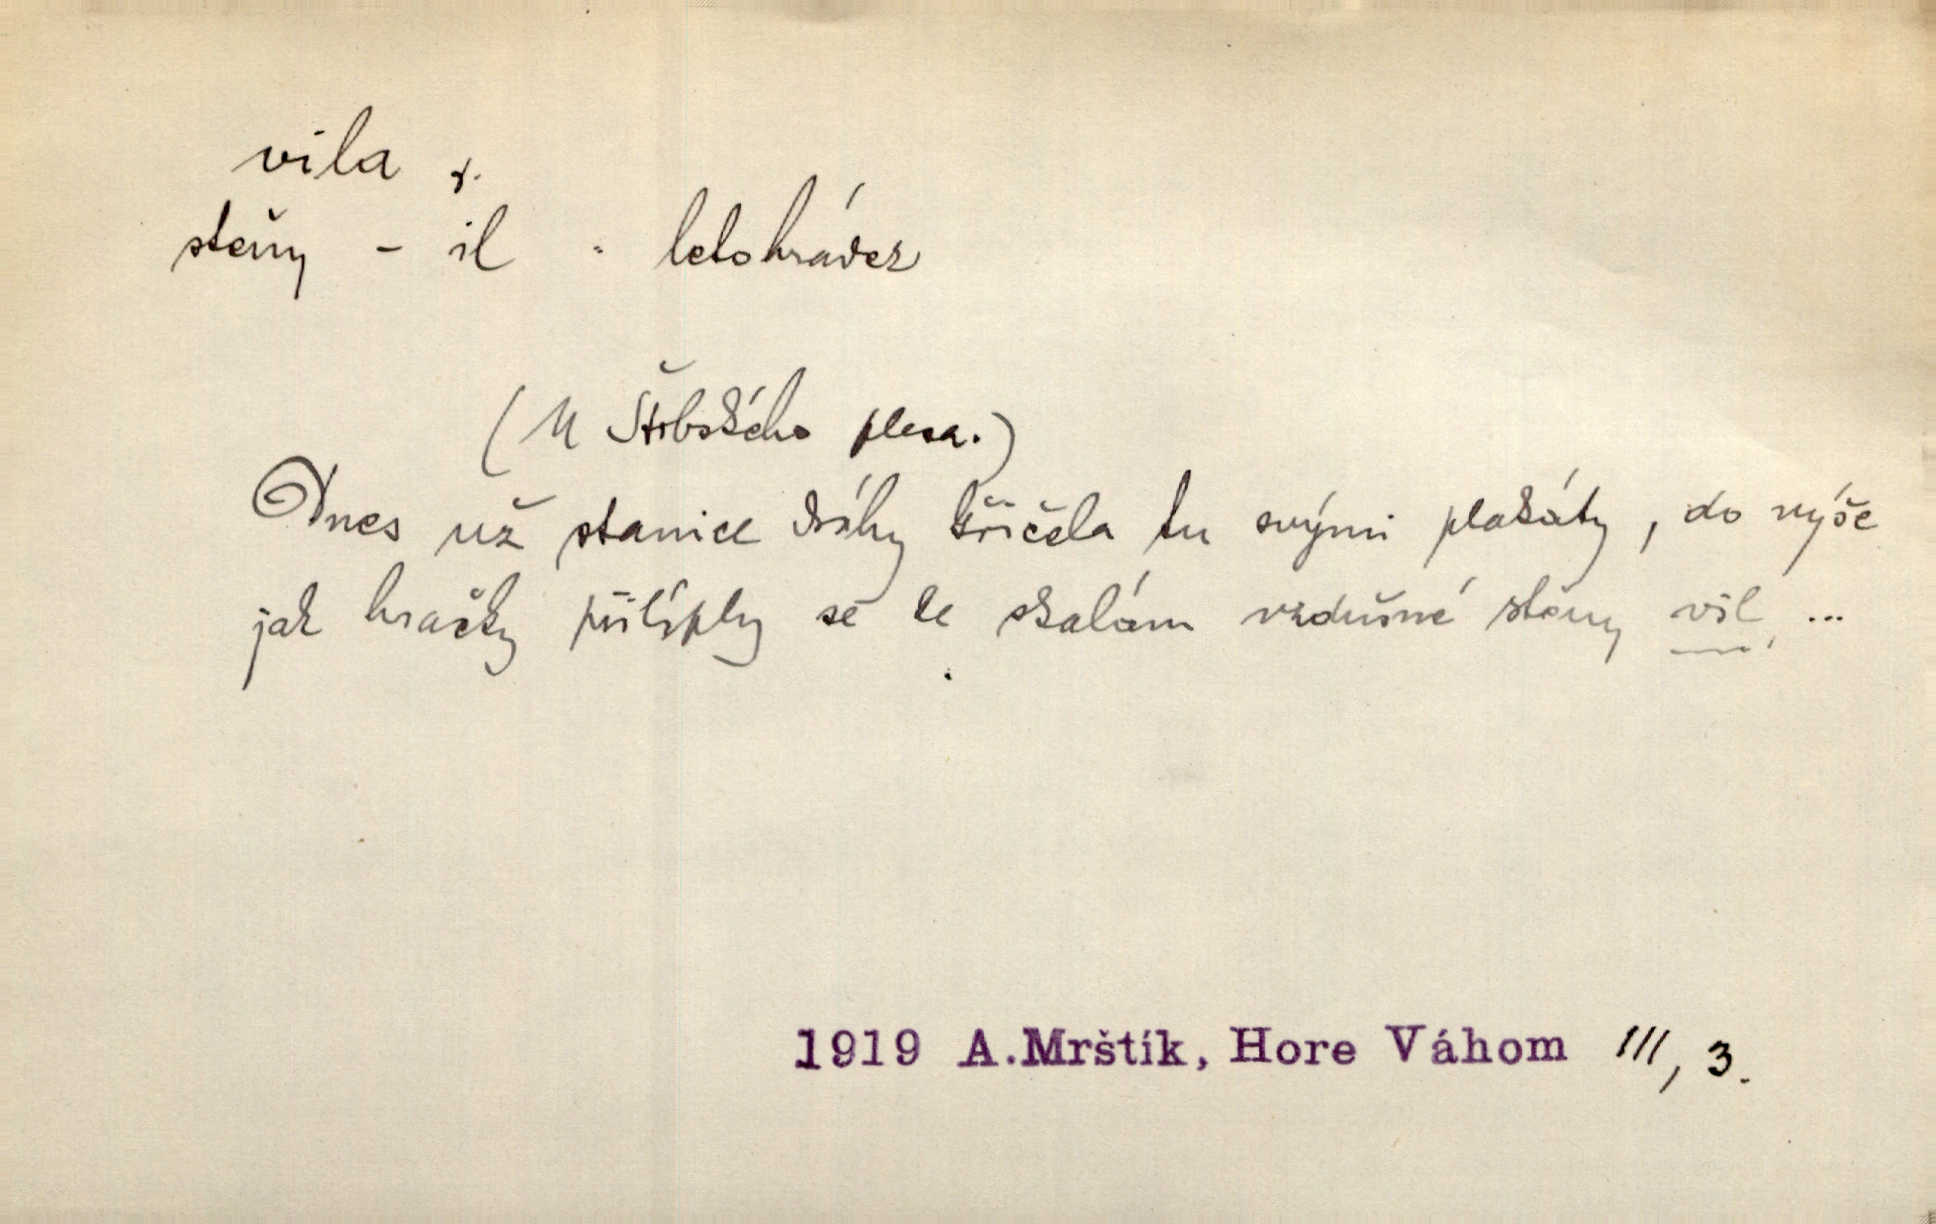 vila ž.
stěny - il = letohrádek
(U Štrbského plesa.)
Dnes už stanice dráhy křičela tu svými plakáty, do výše
jak hračky přilíply se ke skalám vzdušné stěny vil, ...
1919 A.Mrštík, Hore Váhom III, 3.